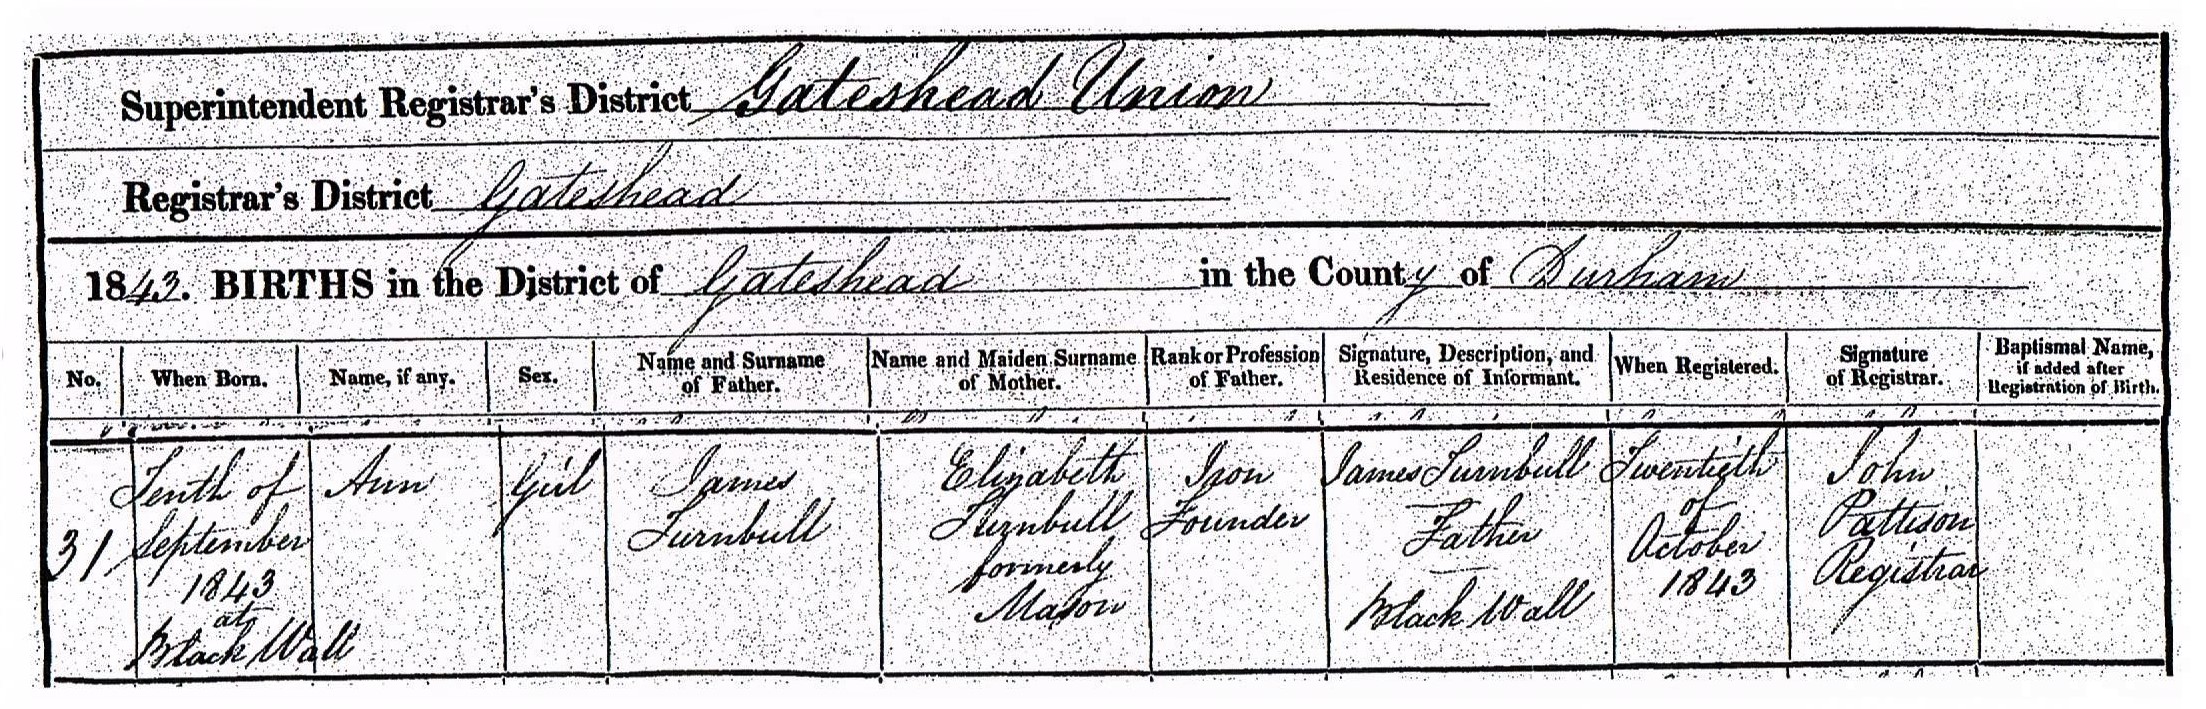 Superintendent Registrar's District Gateshead Union
Registrar's District Gateshead
1843. BIRTHS in the District of Gateshead in the County of Durham
No.
When Born.
Name, if any.
Sex.
Name and Surname
of Father.
Name and Maiden Surname
of Mother.
Rank or Profession
of Father.
Signature, Description, and
Residence of Informant.
When Registered.
Signature
of Registrar.
Baptismal Name,
if added after
Registration of Birth.
31
Tenth of
September
1843
at
Black Wall
Ann
Girl
James
Turnbull
Elizabeth
Turnbull
formerly
Mason
Iron
Founder
James Turnbull
Father
Black Wall
Twentieth
of
October
1843
John
Pattison
Registrar